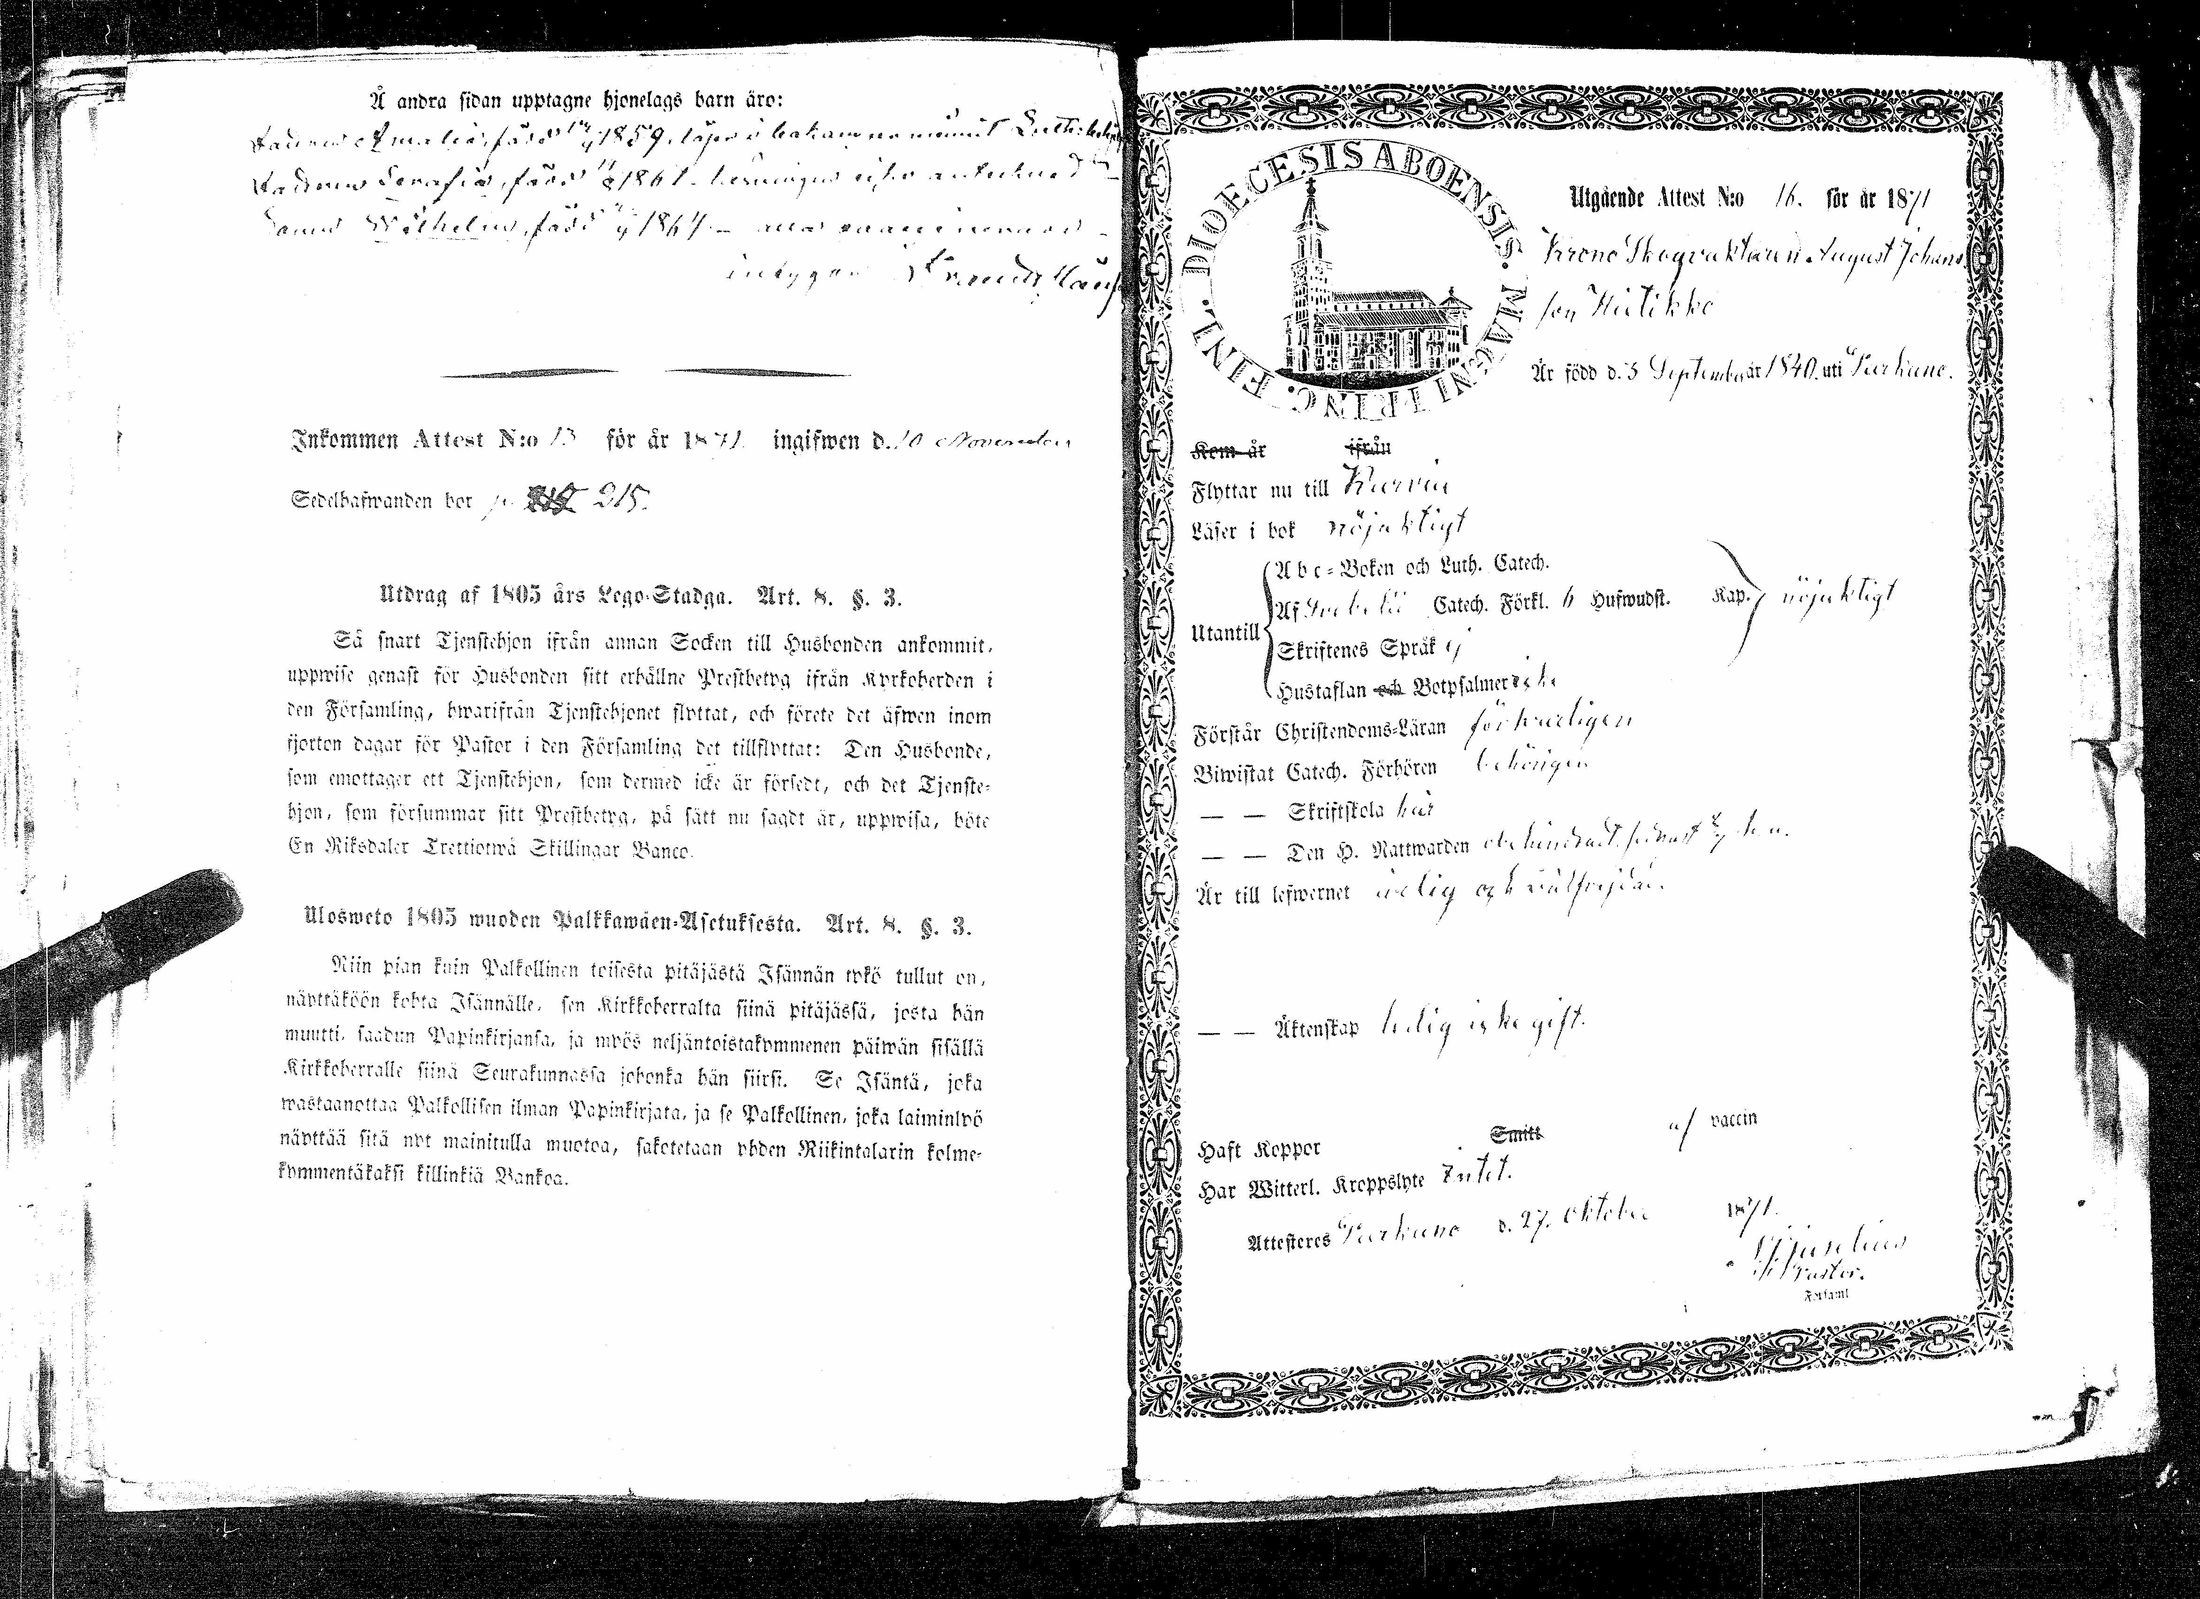 Å andra sidan upptagne hjonelags barn äro:
Amalia, född 1859, läser i bok
Serafia, född 1861
Wilhelm, född 1864
intygar
Inkommen Attest N:o 13 för år 1871 ingifwen d. 10 November
Sedelhafwanden bor p. 215.
Utdrag af 1805 års Lego-Stadga. Art. 8. §. 3.
Så snart Tjenstehjon ifrån annan Socken till Husbonden ankommit,
uppwise genast för Husbonden sitt erhållne Prestbetyg ifrån Kyrkoherden i
den Församling, hwarifrån Tjenstehjonet flyttat, och förete det äfwen inom
fjorton dagar för Pastor i den Församling det tillflyttat: Den Husbonde,
som emottager ett Tjenstehjon, som dermed icke är försedt, och det Tjenste-
hjon, som försummar sitt Prestbetyg, på sätt nu sagdt är, uppwisa, böte
En Riksdaler Trettiotwå Skillingar Banco.
Ulosweto 1805 wuoden Palkkawäen-Asetuksesta. Art. 8. §. 3.
Niin pian kuin Palkollinen toisesta pitäjästä Isännän tykö tullut on,
näyttäköön kohta Isännälle, sen Kirkkoherralta siinä pitäjässä, josta hän
muutti, saadun Papinkirjansa, ja myös neljäntoistakymmenen päiwän sisällä
Kirkkoherralle siinä Seurakunnassa johonka hän siirsi. Se Isäntä, joka
wastaanottaa Palkollisen ilman Papinkirjata, ja se Palkollinen, joka laiminlyö
näyttää sitä nyt mainitulla muotoa, sakotetaan yhden Riikintalarin kolme-
kymmentäkaksi killinkiä Bankoa.
DIOECESIS ABOENSIS. MAGNI PRINC. FINL.
Utgående Attest N:o 16. för år 1871
Krono Skogvaktaren August Johans
son Hietikko
Är född d. 5 September år 1840. uti Parkano.
Kom år ifrån
Flyttar nu till Kurvia
Läser i bok nöjaktigt
Utantill
A b c-Boken och Luth. Catech.
Af Svebelii Catech. Förkl. 6 Hufwudst. Kap. nöjaktigt
Skriftenes Språk ej
Hustaflan och Botpsalmer icke
Förstår Christendoms-Läran försvarligen
Biwistat Catech. Förhören behörigen
— — Skriftskola här
— — Den H. Nattwarden obehindradt, senast
Är till lefwernet ärlig och välfrejdad.
— — Äktenskap ledig icke gift.
Haft Koppor Smitt af vaccin
Har Witterl. Kroppslyte Intet.
Attesteres Parkano d. 27. Oktober 1871.
Pastor.
Församl